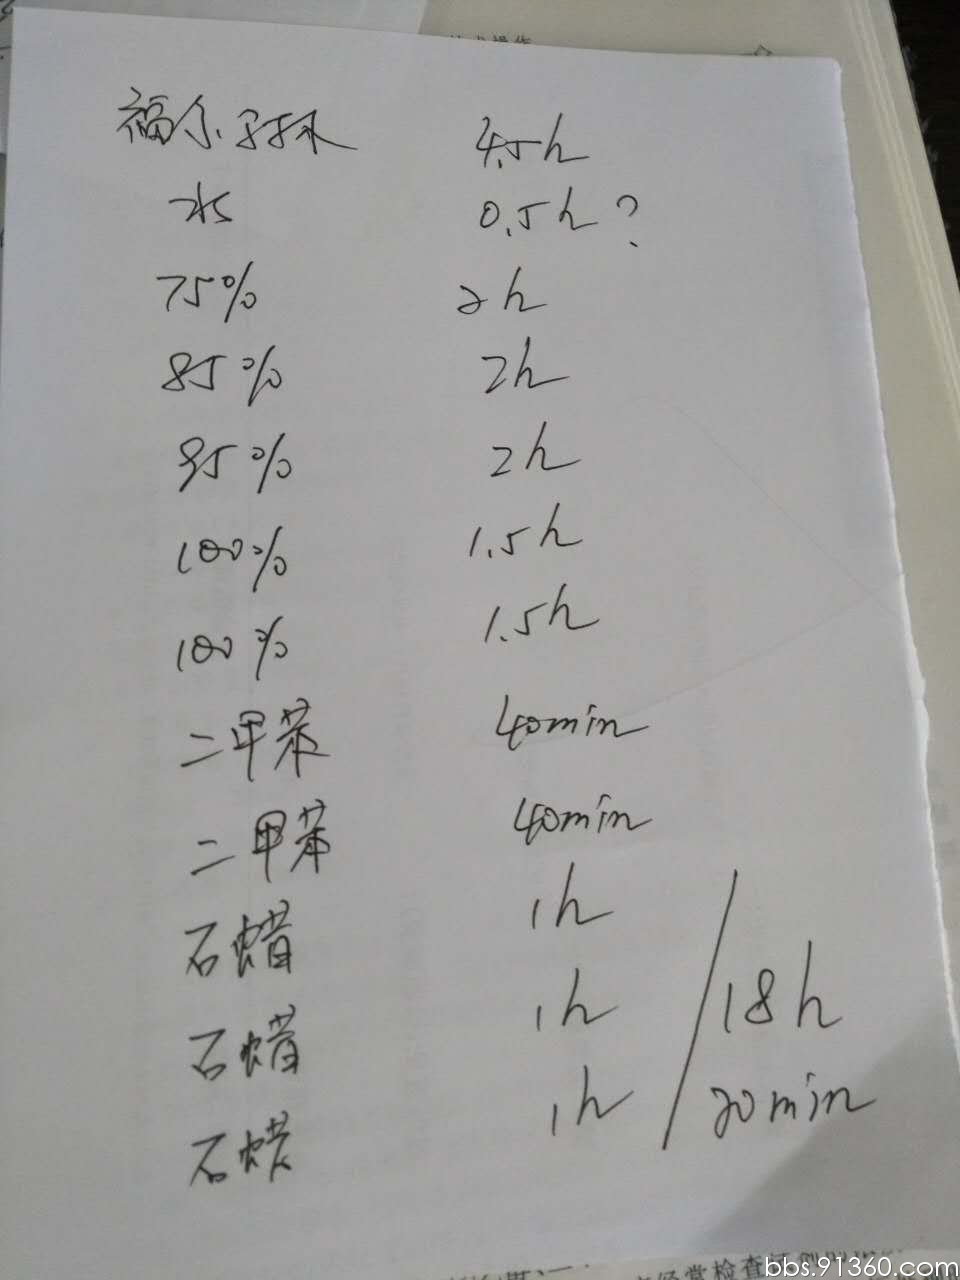 福尔马林 4.5h
水 0.5h?
75% 2h
85% 2h
95% 2h
100% 1.5h
100% 1.5h
二甲苯 40min
二甲苯 40min
石蜡 1h
石蜡 1h / 18h
石蜡 1h 20min
bbs.91360.com